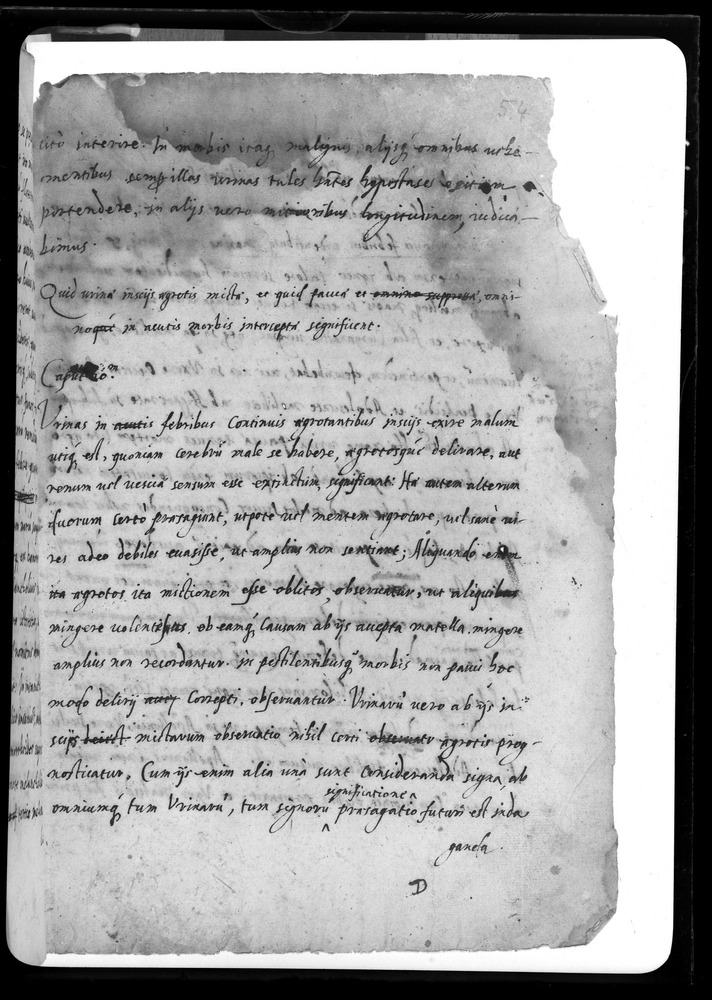 54
cito interire. In morbis itaq; malignis, alijsq; omnibus vehe-
mentibus semp illas urinas tales hñtes hypostases exitium
portendere, in alijs vero mitioribus longitudinem, iudica-
bimus.
Quid urinæ inscijs ægrotis mictæ, et quid paucæ et omnino suppressæ, omni-
noquè in acutis morbis interceptæ significent.
Caput 10.m
Vrinas in acutis febribus Continuis ægrotantibus inscijs exire malum
utiq; est, quoniam Cerebrũ male se habere, ægrotosquè delirare, aut
renum vel vesicæ sensum esse extinctum, significant: Hæ autem alterum
duorum Certò præsagiunt, utpote vel mentem ægrotare, vel sanè vi-
res adeo debiles evasisse, ut amplius non sentiant; Aliquando enim
ita ægrotos ita mictionem esse oblitos, observatur, ut aliquibus
mingere volentibus, ob eamq; Causam ab ijs accepta matella, mingere
amplius non recordantur. in pestilentibusq; morbis non pauci hoc
modo delirij Correpti, observantur. Vrinarũ vero ab ijs in-
scijs mictarum observatio nihil Certi observatr ægrotis prog-
nosticatur, Cum ijs enim alia unà sunt Consideranda signa, ab
significatione
omniumq; tum Vrinarũ, tum signorũ præsagatio futuri est inda
ganda.
D